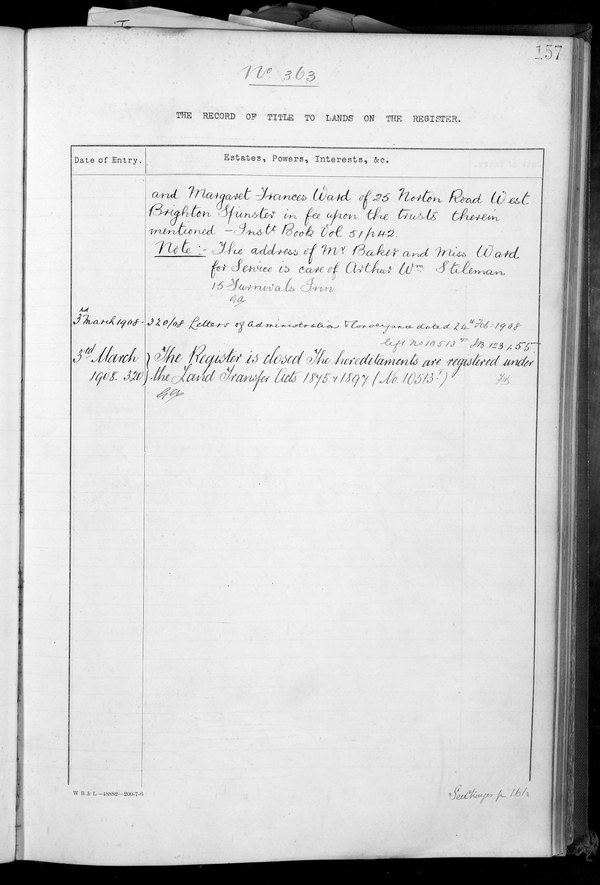 157
No 363
THE RECORD OF TITLE TO LANDS ON THE REGISTER.
Date of Entry.
Estates, Powers, Interests, &c.
and Margaret Frances Ward of 25 Norton Road West
Brighton Spinster in fee upon the trusts therein
mentioned – Instt Book Vol 51/p 42.
Note :- The address of Mr Baker and Miss Ward
for Service is care of Arthur Wm Stileman
15 Furnivals Inn
3rd March 1908 - 320/08 Letters of Administration & Conveyance dated 24th Feb 1908
left No 10513 IB 123 p 55
3rd March } The Register is closed The hereditaments are registered under
1908. 320 } the Land Transfer Acts 1875 & 1897 (No. 10513)
W B & L—49862—200-7-
See Charges p